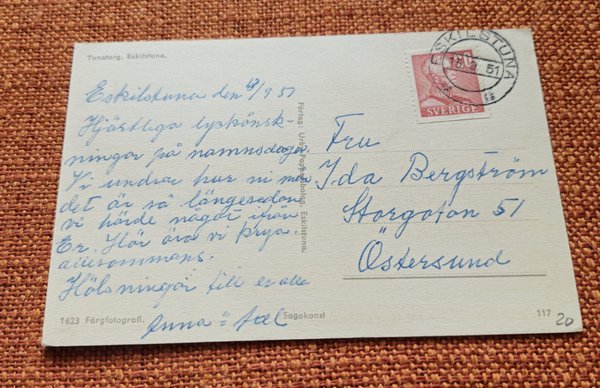 Tunatorg, Eskilstuna.
Eskilstuna den 13/9 51
Hjärtliga lyckönsk-
ningar på namnsdagen
Vi undrar hur ni mår
det är så längesedan
vi hörde något ifrån
Er. Här äro vi krya
allesammans.
Hälsningar till er alla
Anna o Axel
1623 Färgfotografi.
Sagokonst
Förlag: Ureå Pappersbolag, Eskilstuna.
ESKILSTUNA
51
60
SVERIGE
Fru
Ida Bergström
Storgatan 51
Östersund
117
20